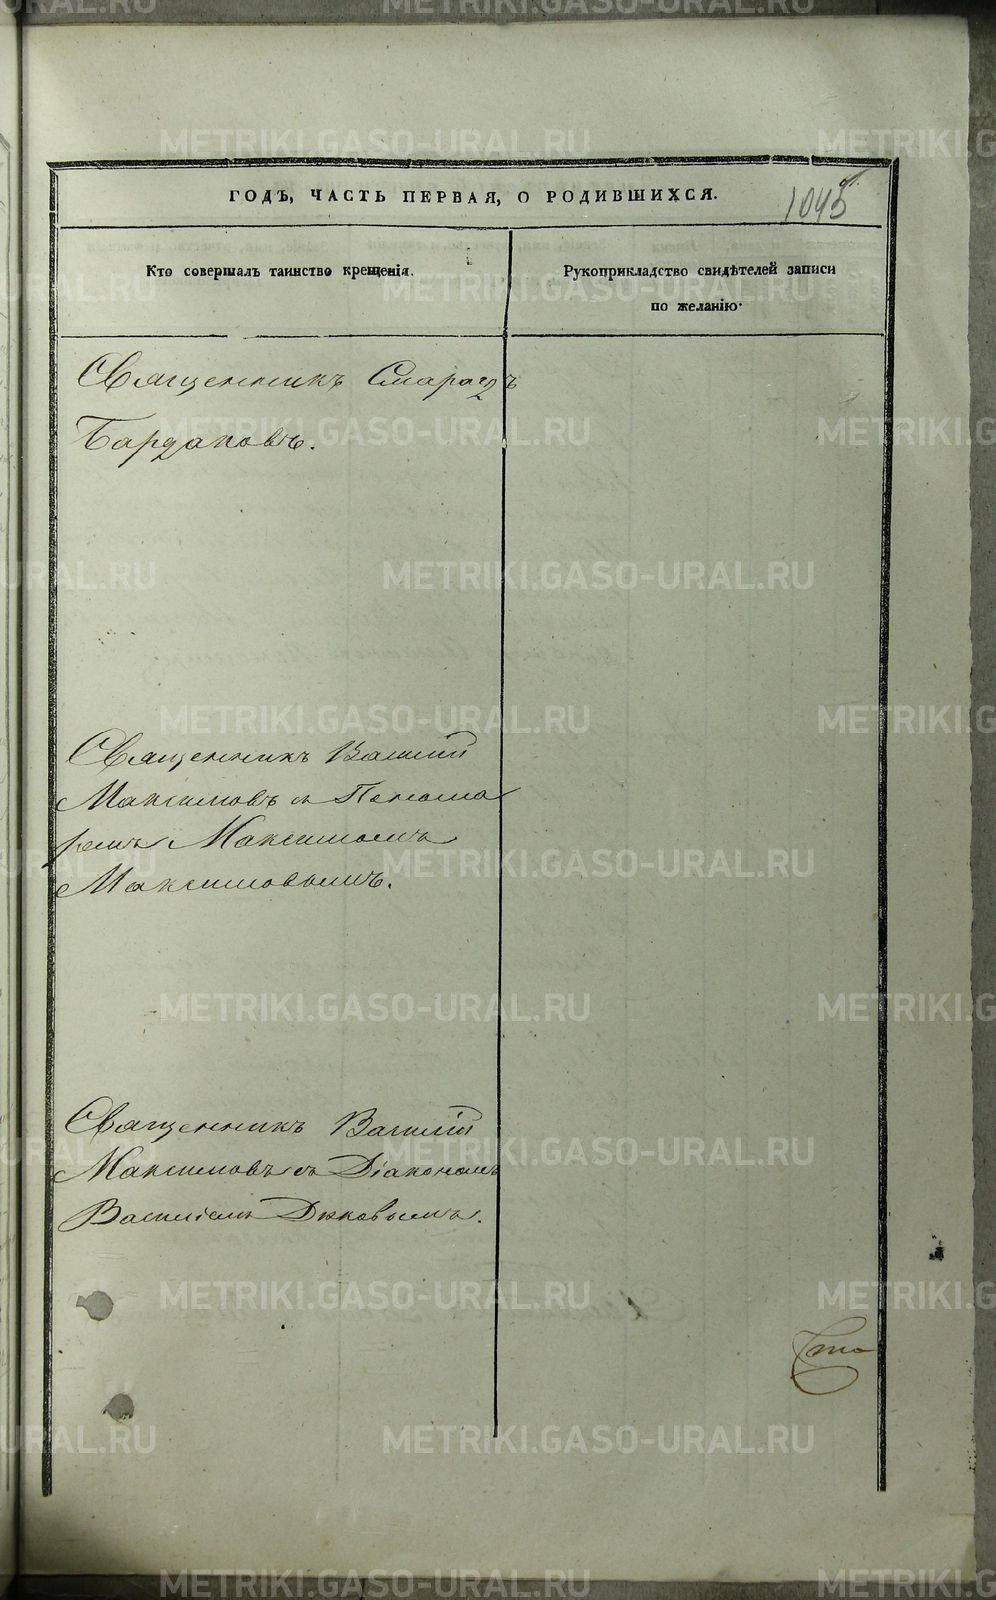 ГОДЪ, ЧАСТЬ ПЕРВАЯ, О РОДИВШИХСЯ.
1045
Кто совершалъ таинство крещенія.
Рукоприкладство свидѣтелей записи
по желанію.
Священникъ Смарагдъ
Бардаковъ.
Священникъ Василій
Максимовъ съ Понома
ремъ Максимомъ
Максимовымъ.
Священникъ Василій
Максимовъ съ Діакономъ
Василіемъ Дьковымъ.
Сто
METRIKI.GASO-URAL.RU